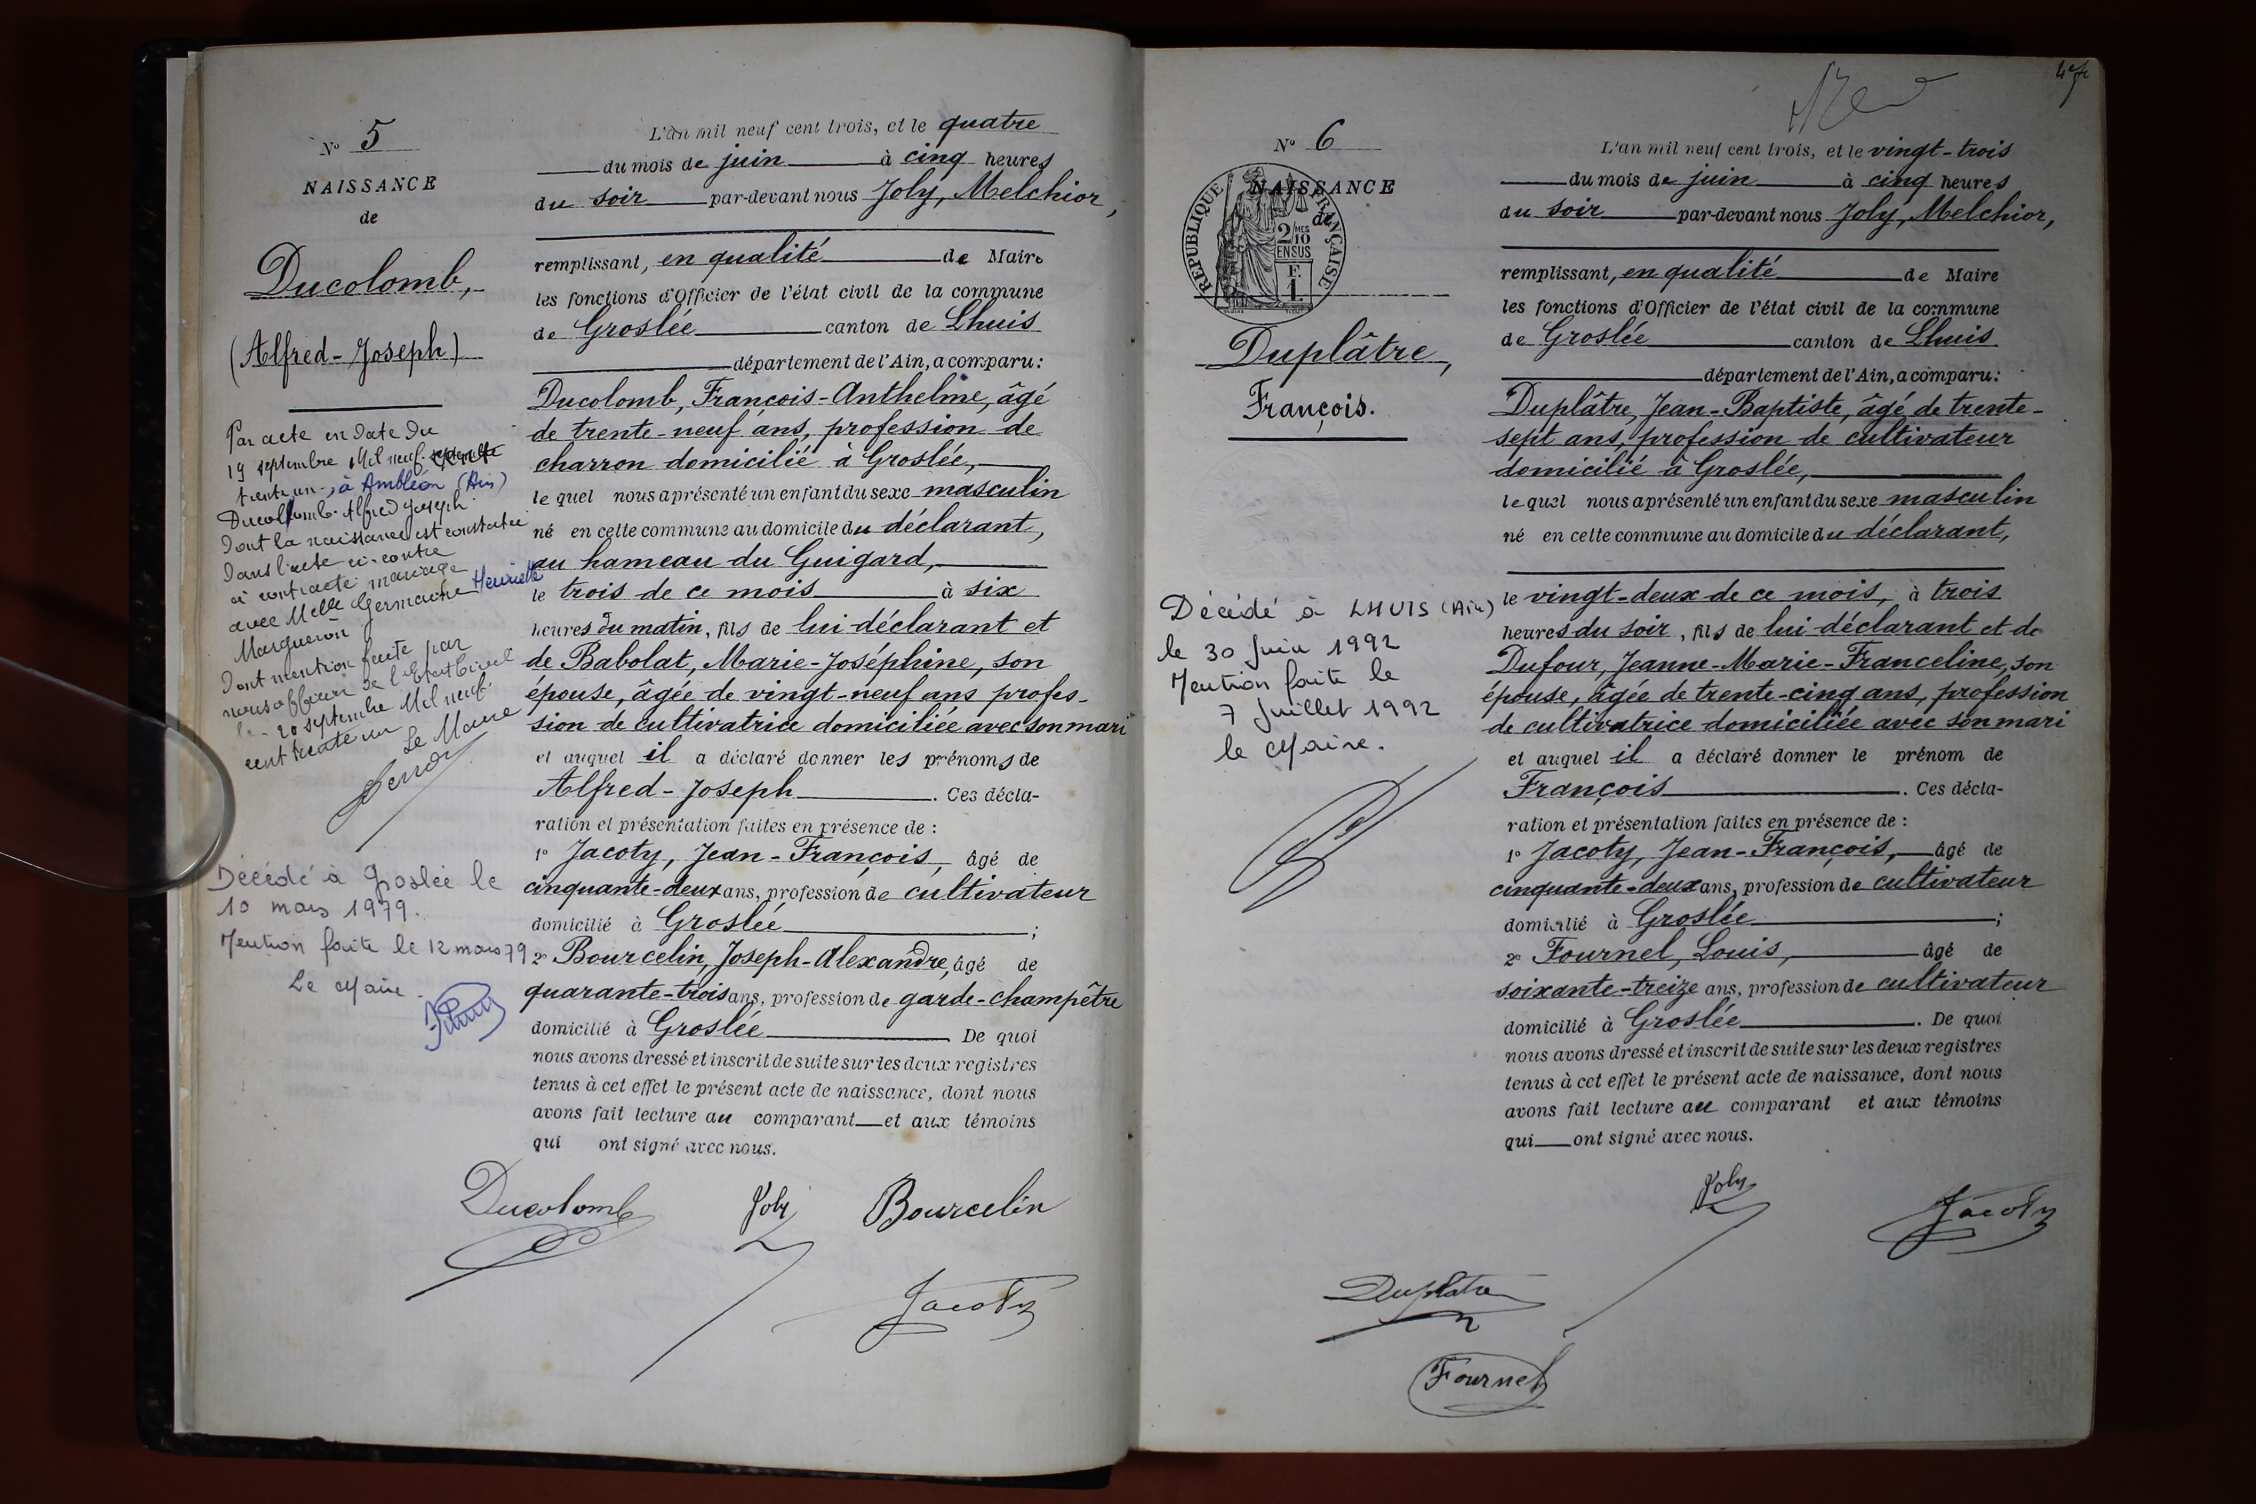 N° 5
NAISSANCE
de
Ducolomb,
(Alfred-Joseph)
Par acte en date du
19 septembre Mil neuf cent
trente un, à Ambléon (Ain)
Ducolomb Alfred Joseph
dont la naissance est constatée
dans l'acte ci-contre
a contracté mariage
avec Melle Germaine Henriette
Margueron
Dont mention faite par
nous officier de l'Etat Civil
le 20 septembre Mil neuf
cent trente un
Le Maire
Décédé à Groslée le
10 mars 1979.
Mention faite le 12 mars 79
Le Maire.
L'an mil neuf cent trois, et le quatre
du mois de juin à cinq heures
du soir par-devant nous Joly, Melchior,
remplissant, en qualité de Maire
les fonctions d'Officier de l'état civil de la commune
de Groslée canton de Lhuis
département de l'Ain, a comparu:
Ducolomb, François-Anthelme, âgé
de trente-neuf ans, profession de
charron domicilié à Groslée,
lequel nous a présenté un enfant du sexe masculin
né en cette commune au domicile du déclarant,
au hameau du Guigard,
le trois de ce mois à six
heures du matin, fils de lui déclarant et
de Babolat, Marie-Joséphine, son
épouse, âgée de vingt-neuf ans profes-
sion de cultivatrice domiciliée avec son mari
et auquel il a déclaré donner les prénoms de
Alfred-Joseph. Ces décla-
ration et présentation faites en présence de :
1° Jacoty, Jean-François, âgé de
cinquante-deux ans, profession de cultivateur
domicilié à Groslée ;
2° Bourcelin, Joseph-Alexandre, âgé de
quarante-trois ans, profession de garde-champêtre
domicilié à Groslée De quoi
nous avons dressé et inscrit de suite sur les deux registres
tenus à cet effet le présent acte de naissance, dont nous
avons fait lecture au comparant et aux témoins
qui ont signé avec nous.
Ducolomb Joly Bourcelin
Jacoty
N° 6
NAISSANCE
de
RÉPUBLIQUE FRANÇAISE
2/10 MES
EN SUS
F.
1.
Duplâtre,
François.
Décédé à LHUIS (Ain)
le 30 Juin 1992
Mention faite le
7 Juillet 1992
le Maire.
L'an mil neuf cent trois, et le vingt-trois
du mois de juin à cinq heures
du soir par-devant nous Joly, Melchior,
remplissant, en qualité de Maire
les fonctions d'Officier de l'état civil de la commune
de Groslée canton de Lhuis
département de l'Ain, a comparu:
Duplâtre, Jean-Baptiste, âgé de trente-
sept ans, profession de cultivateur
domicilié à Groslée,
lequel nous a présenté un enfant du sexe masculin
né en cette commune au domicile du déclarant,
le vingt-deux de ce mois, à trois
heures du soir, fils de lui déclarant et de
Dufour, Jeanne-Marie-Franceline, son
épouse, âgée de trente-cinq ans, profession
de cultivatrice domiciliée avec son mari
et auquel il a déclaré donner le prénom de
François. Ces décla-
ration et présentation faites en présence de :
1° Jacoty, Jean-François, âgé de
cinquante-deux ans, profession de cultivateur
domicilié à Groslée ;
2° Fournel, Louis, âgé de
soixante-treize ans, profession de cultivateur
domicilié à Groslée. De quoi
nous avons dressé et inscrit de suite sur les deux registres
tenus à cet effet le présent acte de naissance, dont nous
avons fait lecture au comparant et aux témoins
qui ont signé avec nous.
Joly Jacoty
Duplatre
Fournel